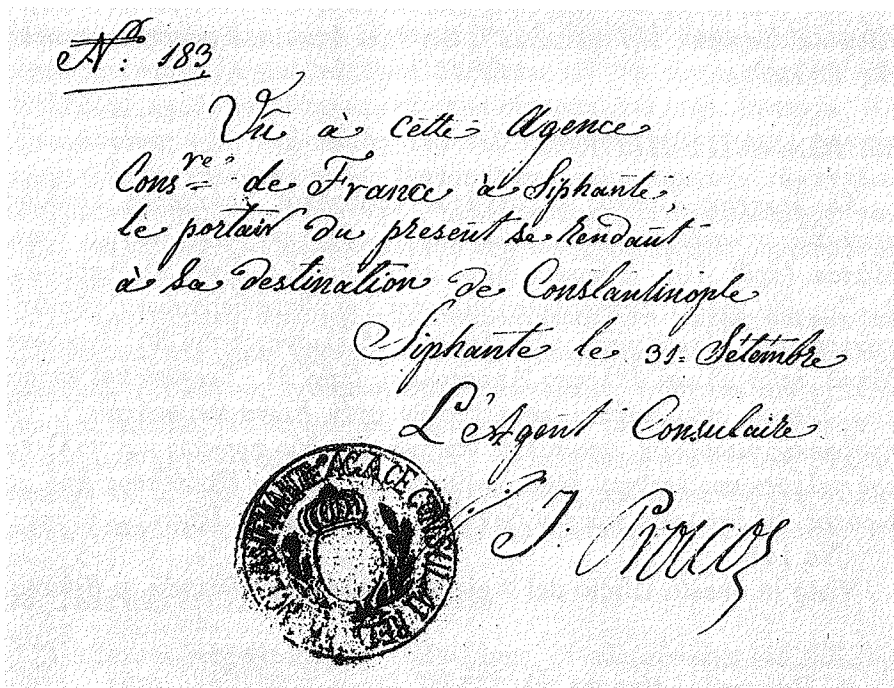 №: 183
Vû à cette Agence
Cons.re de France à Siphante,
le portair du present se rendant
à Sa destination de Constantinople
Siphante le 31= Sétembre
L'Agent Consulaire
J.
CONSULAIRE